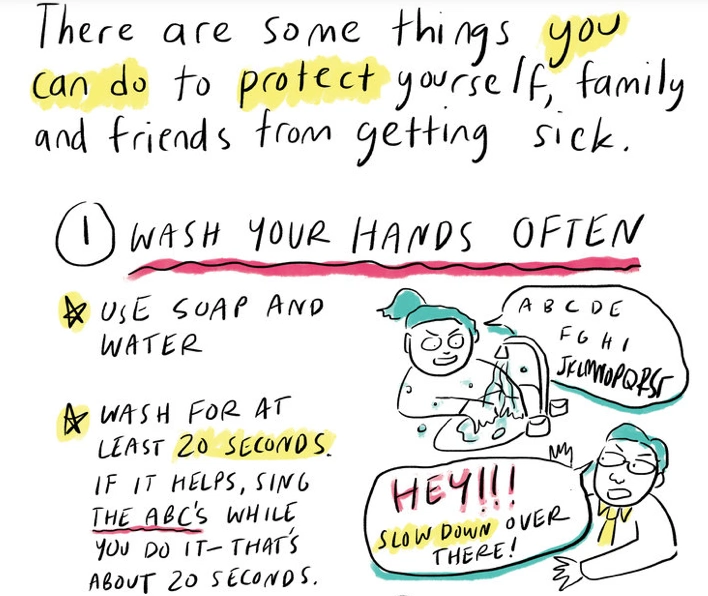 There are some things you
can do to protect yourself, family
and friends from getting sick.
1 WASH YOUR HANDS OFTEN
USE SOAP AND
WATER
WASH FOR AT
LEAST 20 SECONDS.
IF IT HELPS, SING
THE ABC'S WHILE
YOU DO IT- THAT'S
ABOUT 20 SECONDS.
A B C D E
F G H I
JKLMNOPQRST
HEY!!!
SLOW DOWN OVER
THERE!